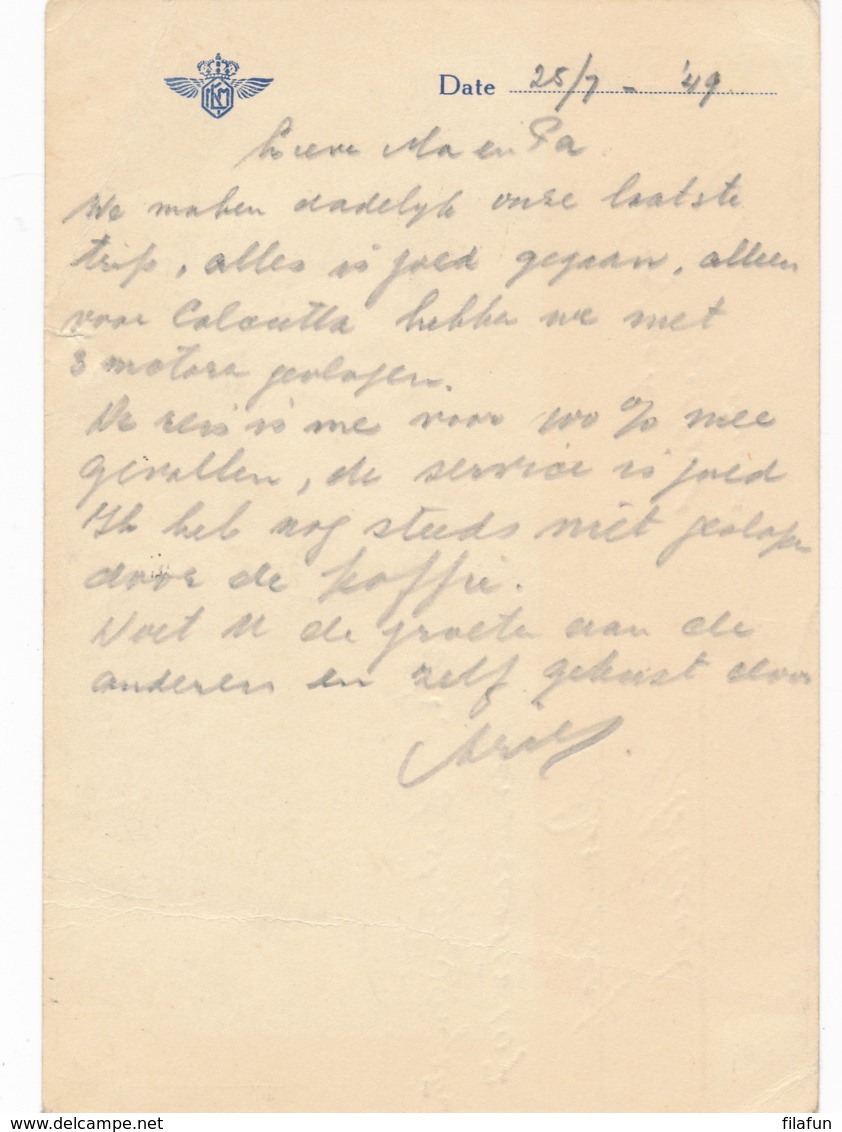 KLM
Date 25/7 - '49
Lieve Ma en Pa
We maken dadelijk onze laatste
trip, alles is goed gegaan, alleen
voor Calcutta hebben we met
3 motoren gevlogen.
De reis is me voor 100 % mee
gevallen, de service is goed
Ik heb nog steeds niet gevlogen
door de koffie.
Weet U de groeten aan de
anderen en zelf gekust door
filafun